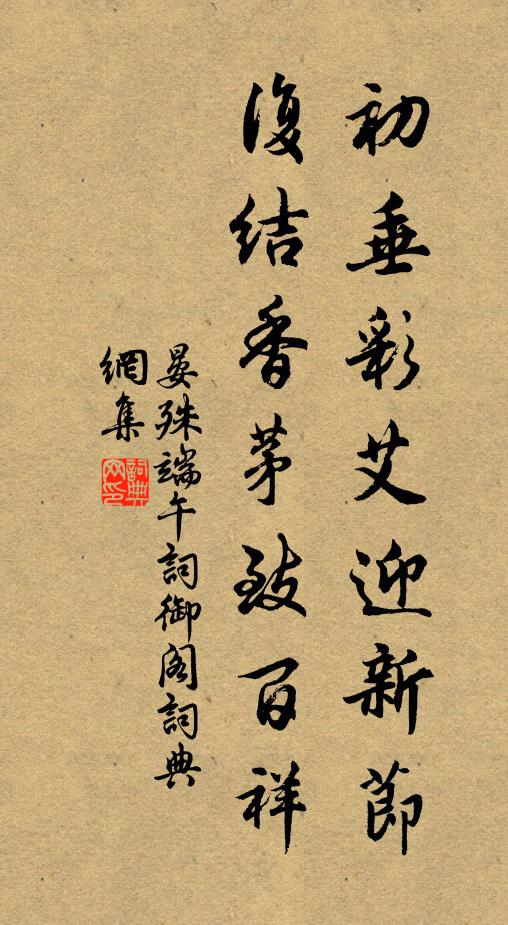 初垂彩艾迎新節
復結香茅致百祥
晏殊端午詞御閣詞典
網集
詞典
网印